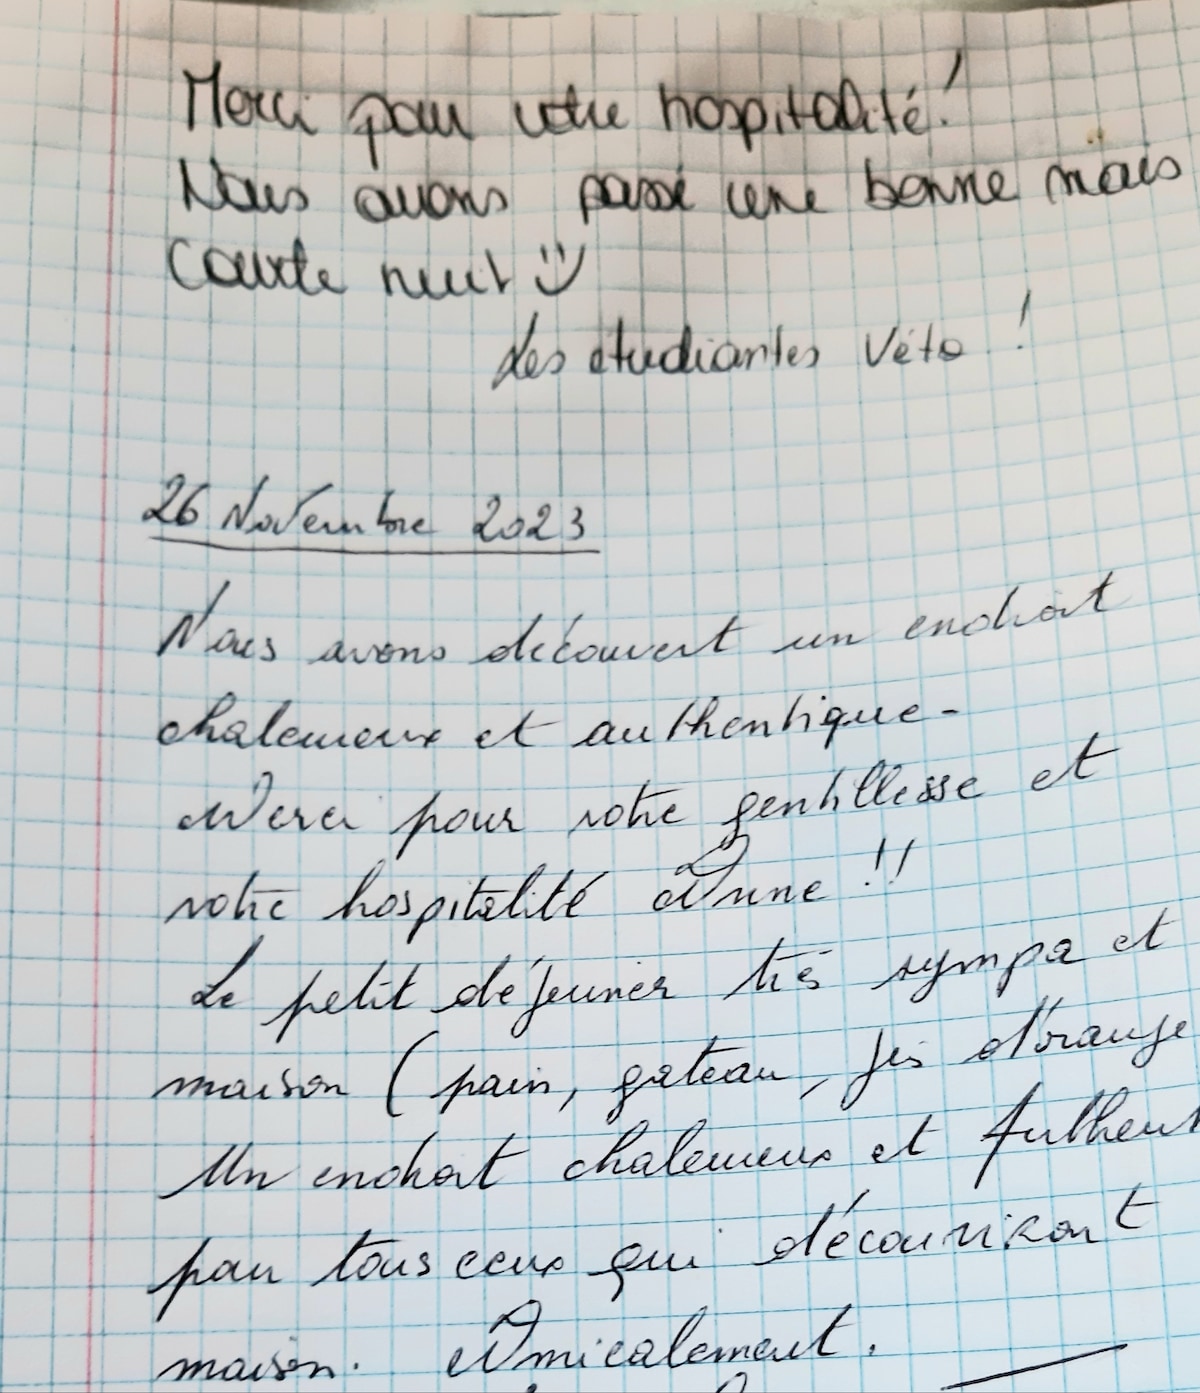 Merci pour votre hospitalité !
Nous avons passé une bonne mais
courte nuit
Les étudiantes Véto !
26 Novembre 2023
Nous avons découvert un endroit
chaleureux et authentique.
Merci pour votre gentillesse et
votre hospitalité Anne !!
Le petit déjeuner très sympa et
maison ( pain, gateau, jus d'orange
Un endroit chaleureux et Authent
pour tous ceux qui découvriront
maison. Amicalement.